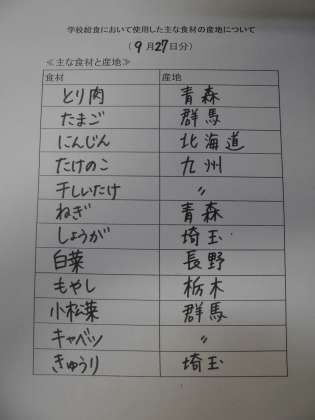 学校給食において使用した主な食材の産地について
(9月27日分)
≪主な食材と産地≫
食材 産地
とり肉 青森
たまご 群馬
にんじん 北海道
たけのこ 九州
干しいたけ 〃
ねぎ 青森
しょうが 埼玉
白菜 長野
もやし 栃木
小松菜 群馬
キャベツ 〃
きゅうり 埼玉